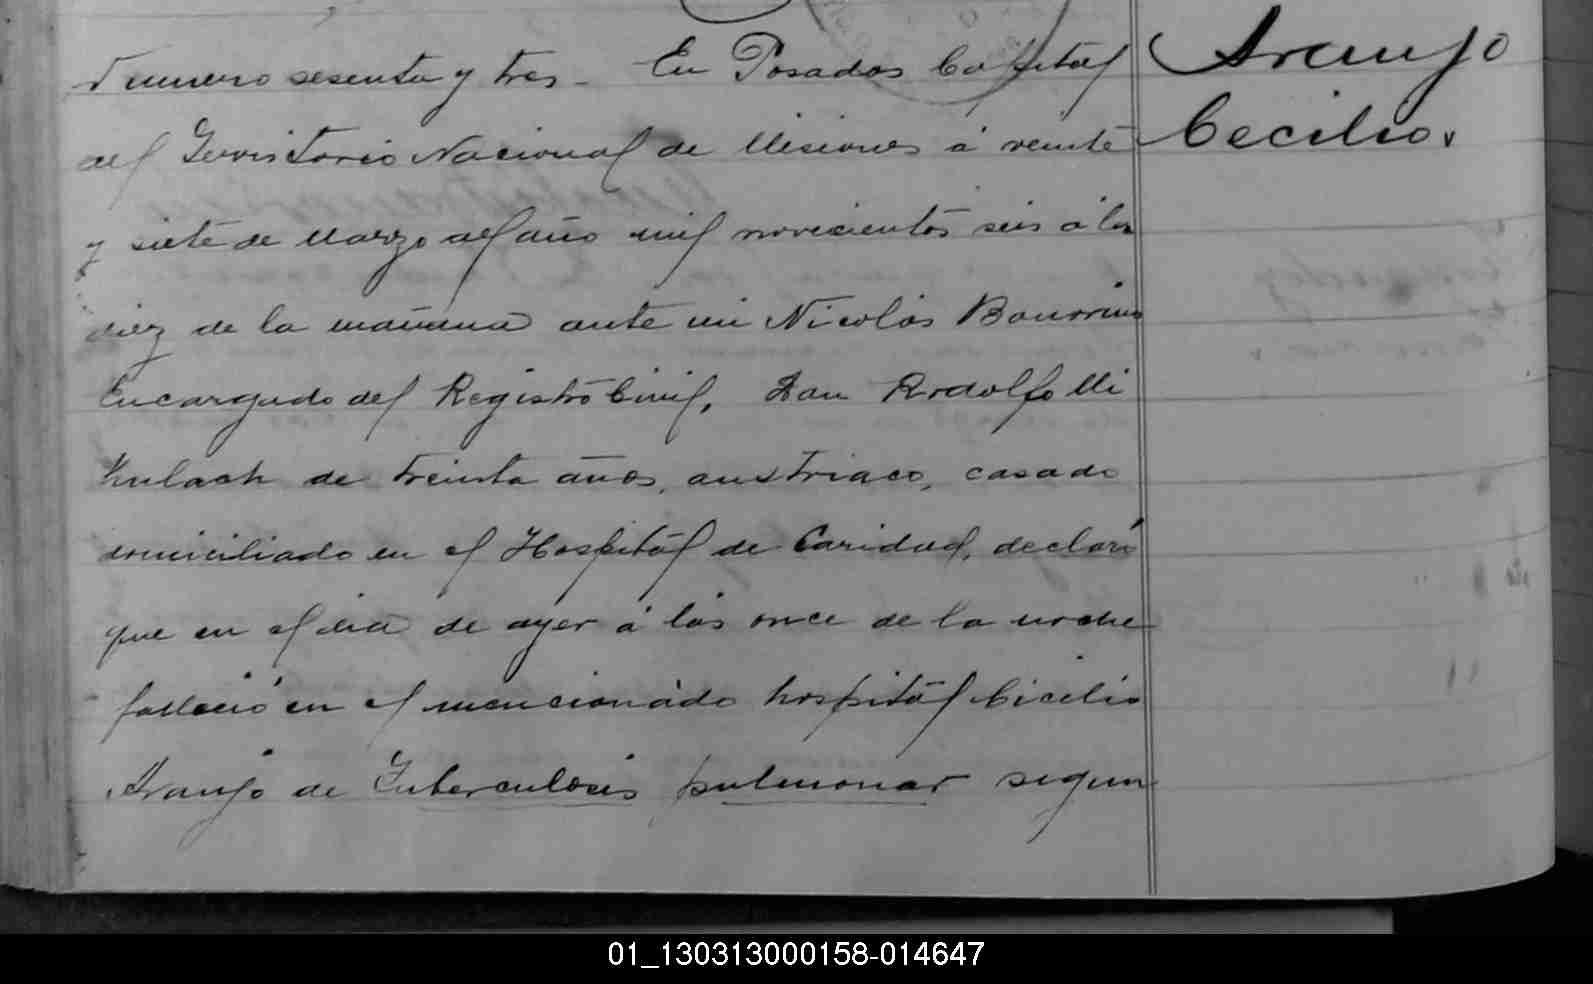 Numero sesenta y tres - En Posadas Capital
del Territorio Nacional de Misiones á veinte
y siete de Marzo del año mil novecientos seis á las
diez de la mañana ante mi Nicolás Bonorino
Encargado del Registro Civil, Don Rodolfo Mi
kulach de treinta años, austriaco, casado
domiciliado en el Hospital de Caridad, declaró
que en el dia de ayer á las once de la noche
falleció en el mencionado hospital Cicilio
Araujo de Tuberculosis pulmonar segun
Araujo
Cecilio.
01_130313000158-014647